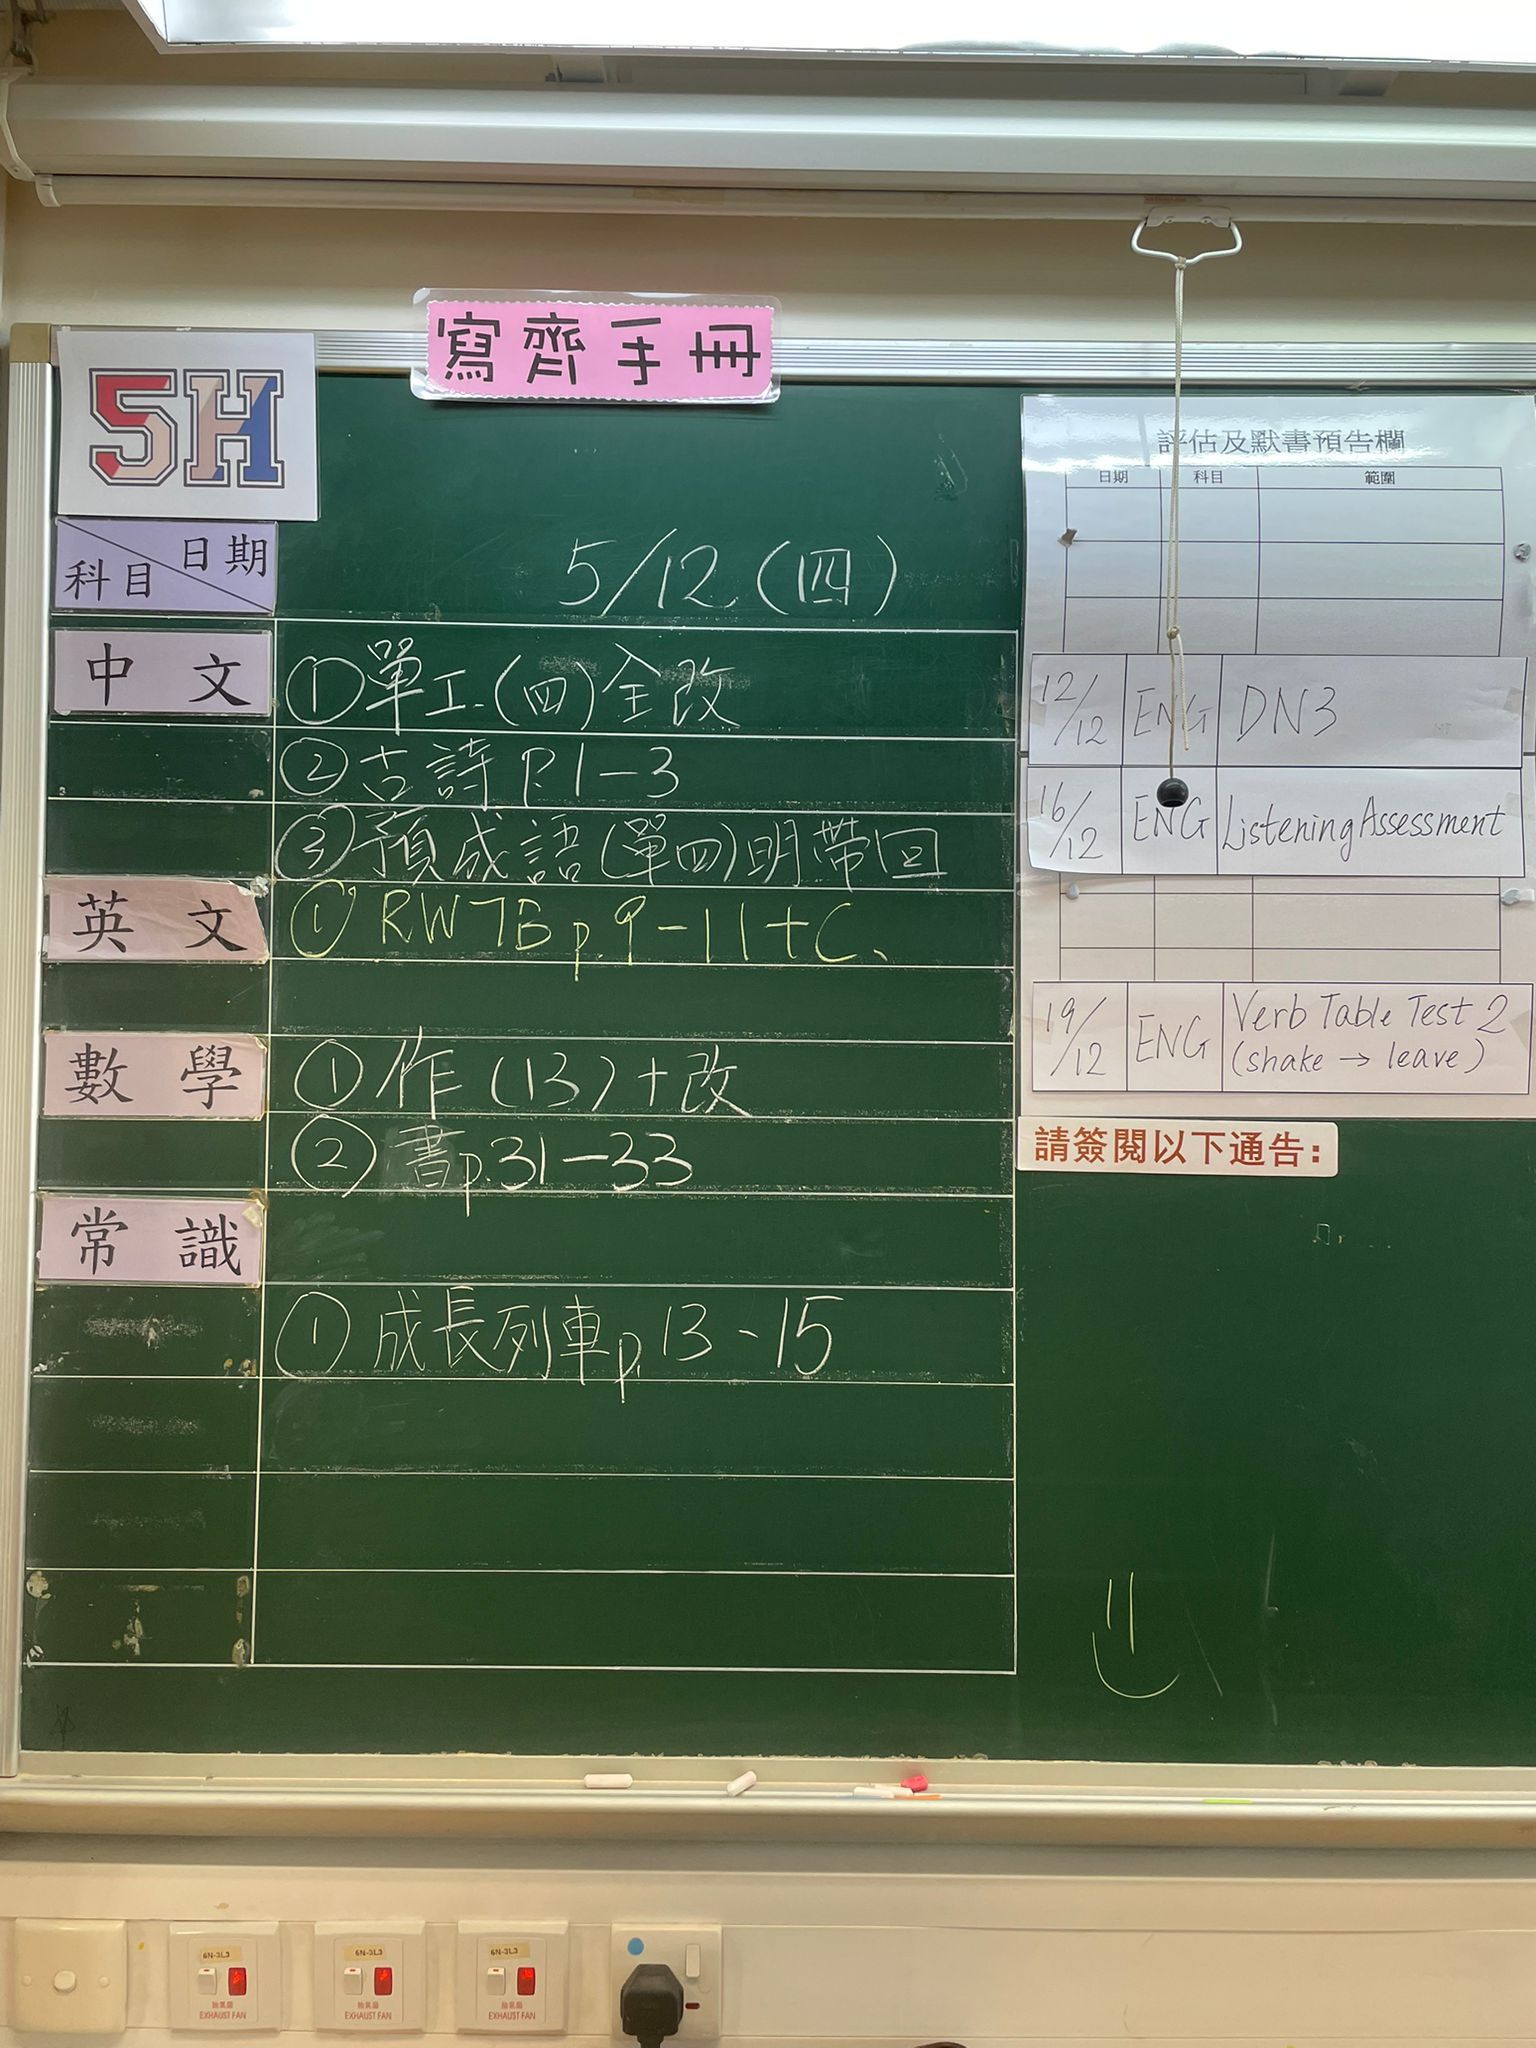 寫齊手冊
5H
日期
科目
5/12(四)
中文
①單工.(四)全改
②古詩P.1-3
③預成語(單四)明帶回
英文
①RW7B p.9-11+C、
數學
①作(13)+改
②書p.31-33
常識
①成長列車p.13、15
評估及默書預告欄
日期 科目 範圍
12/12 ENG DN3
16/12 ENG Listening Assessment
19/12 ENG Verb Table Test 2
(shake → leave)
請簽閱以下通告:
6N-3L3
抽氣扇
EXHAUST FAN
6N-3L3
抽氣扇
EXHAUST FAN
6N-3L3
抽氣扇
EXHAUST FAN